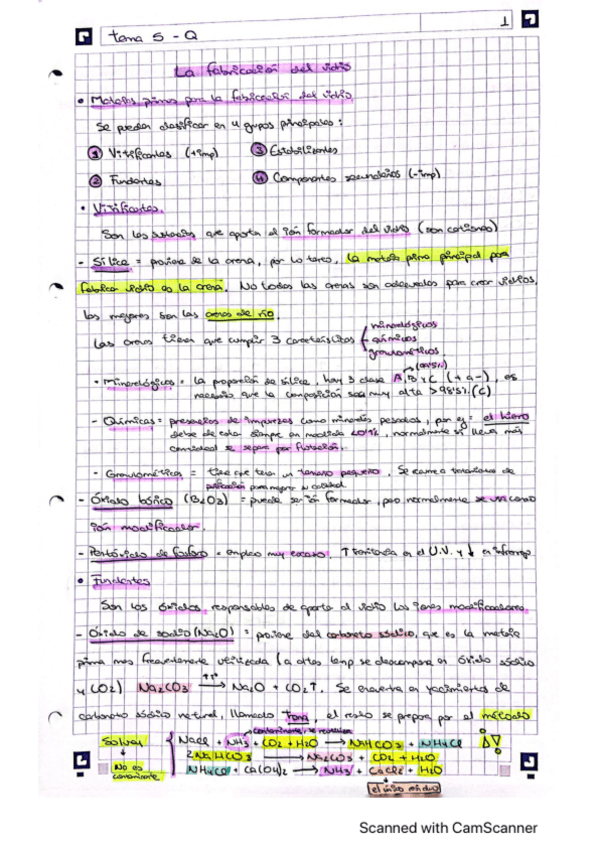 Tema 5 - Q
1
La fabricación del vidrio
• Materias primas para la fabricación del vidrio.
Se pueden clasificar en 4 grupos principales:
1 Vitrificantes (+imp) 3 Estabilizantes
2 Fundentes 4 Componentes secundarios (-imp)
• Vitrificantes.
Son las sustancias que aporta el ión formador del vidrio (son cationes)
- Sílice = proviene de la arena, por lo tanto, la materia prima principal para
fabricar vidrio es la arena. No todas las arenas son adecuadas para crear vidrios,
las mejores son las arenas de río.
Las arenas tienen que cumplir 3 características
mineralógicas
químicas
granulométricas.
• Mineralógicas = la proporción de sílice, hay 3 clase A, B y C (+ a -), es
necesario que la composición sea muy alta > 98'5% (C)
- Químicas = presencias de impurezas como minerales pesados, por ej = el hierro
debe de estar siempre en medida, normalmente si lleva más
cantidad se separa por flotación.
- Granulométricas = tiene que tener un tamaño pequeño. Se carne a
para mejorar su calidad
- Óxido bórico (B2O3) = puede ser ión formador, pero normalmente se usa como
ión modificador.
- Pentóxido de fosforo = empleo muy escaso. ↑ en el U.V. y ↓ en infrarrojo
• Fundentes
Son los óxidos responsables de aportar al vidrio los iones modificadores
- Óxido de sodio (Na2O) = proviene del carbonato sódico, que es la materia
prima mas frecuentemente utilizada (a altas temp se descompone en óxido sódico
y CO2) Na2CO3 → Na2O + CO2↑. Se encuentra en yacimientos de
carbonato sódico natural, llamado Trona, el resto se prepara por el método
contaminante, se
Solvay NaCl + NH3 + CO2 + H2O → NaHCO3 + NH4Cl
2NaHCO3 → Na2CO3 + CO2 + H2O
No es
contaminante
NH4Cl + Ca(OH)2 → NH3 + CaCl2 + H2O
el único residuo
Scanned with CamScanner